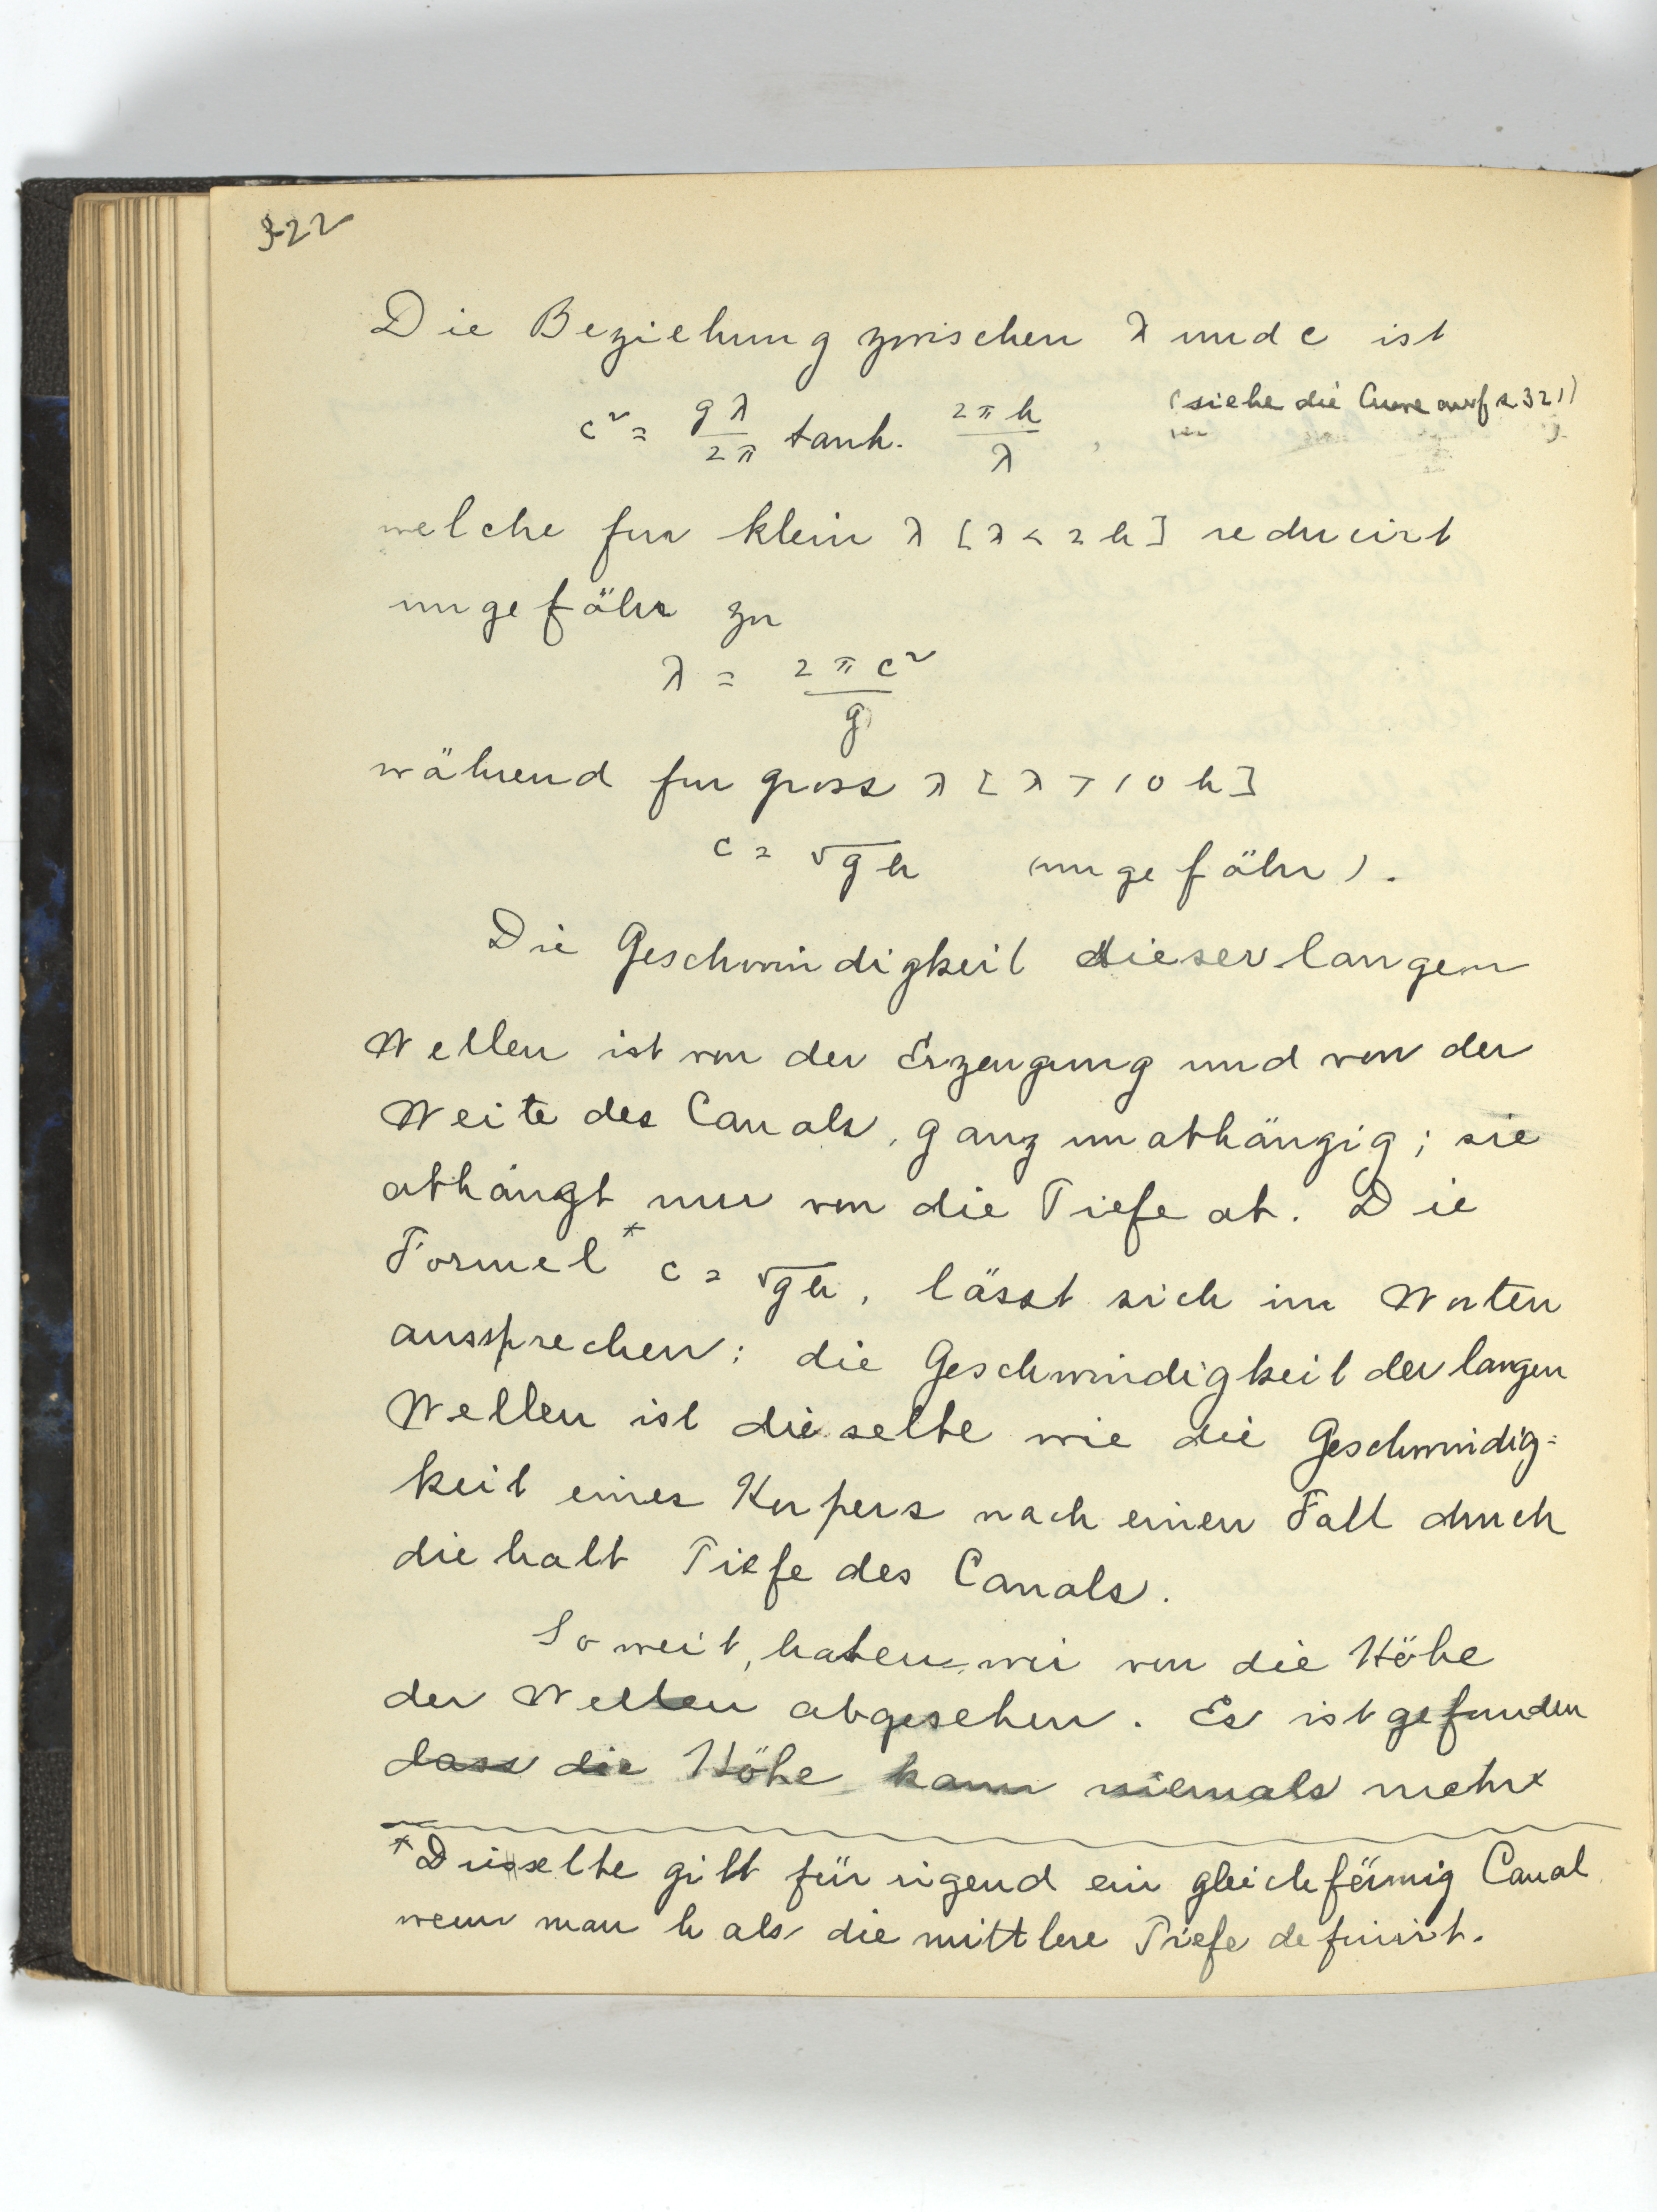 322
Die Beziehung zwischen λ und c ist
c² = gλ/2π tanh. 2πh/λ , (siehe die Curve auf s 321)
welche fur klein λ [λ < 2h] reducirt
ungefähr zu
λ = 2πc²/g
während fur gross λ [λ > 10h]
c = √gh (ungefähr).
Die Geschwindigkeit dieser langen
Wellen ist von der Erzeugung und von der
Weite des Canals, ganz unabhängig; sie
abhängt nur von die Tiefe ab. Die
Formel* c = √gh, lässt sich in Worten
aussprechen: die Geschwindigkeit der langen
Wellen ist dieselbe wie die Geschwindig=
keit eines Korpers nach einen Fall durch
die halb Tiefe des Canals.
So weit, haben wir von die Höhe
der Wellen abgesehen. Es ist gefunden
dass die Höhe kann niemals mehr
*Dasselbe gilt für irgend ein gleichförmig Canal
wenn man h als die mittlere Tiefe definirt.